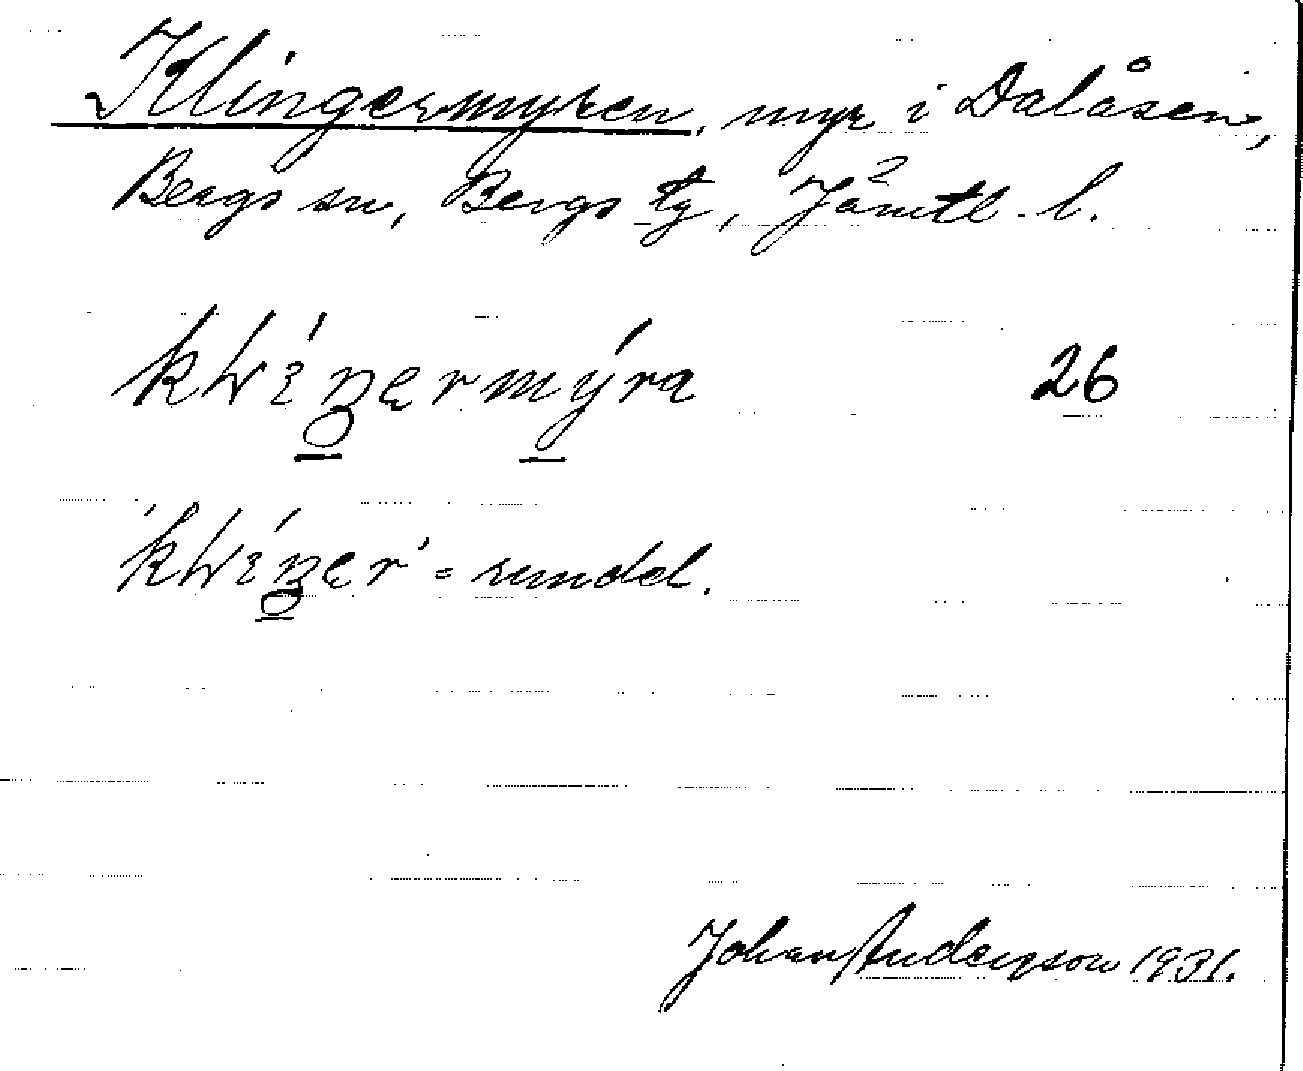 Klingermyren, myr i Dalåsen,
Bergs sn, Bergs tg, Jämtl. l.
26
= rundel.
Johan Anderson 1931.